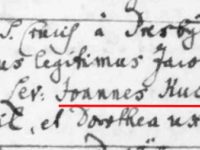 S. Crucis à Presby
us legitimus Jaco
Lev: Joannes Kuc
et Dorothea ux